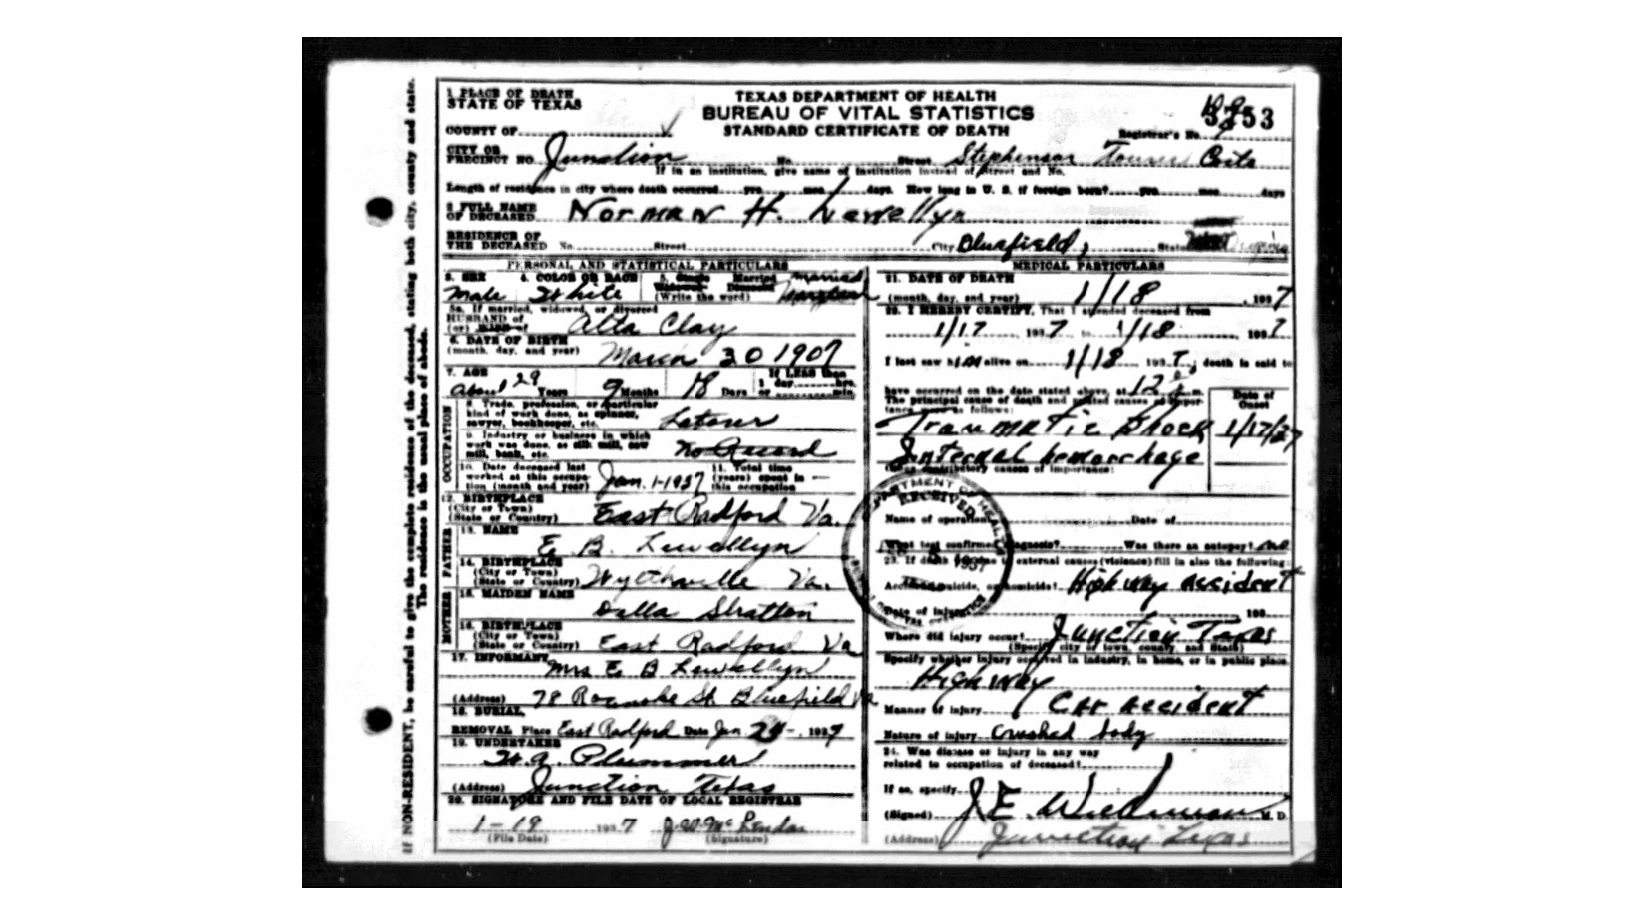 1 PLACE OF DEATH
STATE OF TEXAS
TEXAS DEPARTMENT OF HEALTH
BUREAU OF VITAL STATISTICS
STANDARD CERTIFICATE OF DEATH
COUNTY OF
Registrar's No.
CITY OR
PRECINCT NO. Junction No. Street Stephenson Courts
If in an institution, give name of institution instead of street and No.
Length of residence in city where death occurred yrs. mos. days. How long in U. S. if foreign born? yrs. mos. days
2 FULL NAME
OF DECEASED Norman H. Lewellyn
RESIDENCE OF
THE DECEASED No. Street City Bluefield, State
PERSONAL AND STATISTICAL PARTICULARS
3. SEX 4. COLOR OR RACE 5. Single Married Married
Widowed Divorced
Male White (Write the word)
5a. If married, widowed, or divorced
HUSBAND of
(or) WIFE of Alta Clay
6. DATE OF BIRTH
(month, day, and year) March 30 1907
7. AGE If LESS than
About 29 Years 9 Months 18 Days 1 day hrs. or min.
OCCUPATION
8. Trade, profession, or particular
kind of work done, as spinner,
sawyer, bookkeeper, etc. Laborer
9. Industry or business in which
work was done, as silk mill, saw
mill, bank, etc. No Record
10. Date deceased last
worked at this occupa-
tion (month and year) Jan. 1-1937
11. Total time
(years) spent in
this occupation —
12. BIRTHPLACE
(City or Town)
(State or Country) East Radford Va.
FATHER
13. NAME
E. B. Lewellyn
14. BIRTHPLACE
(City or Town)
(State or Country) Wytheville Va.
MOTHER
15. MAIDEN NAME
Dalla Stratton
16. BIRTHPLACE
(City or Town)
(State or Country) East Radford Va
17. INFORMANT Mrs E B Lewellyn
(Address) 78 Roanoke St. Bluefield Va
18. BURIAL,
REMOVAL Place East Radford Date Jan 24 - 1937
19. UNDERTAKER
W. A. Plummer
(Address) Junction Texas
20. SIGNATURE AND FILE DATE OF LOCAL REGISTRAR
1-19 1937
(File Date) (Signature)
MEDICAL PARTICULARS
21. DATE OF DEATH
(month, day, and year) 1/18, 1937
22. I HEREBY CERTIFY, That I attended deceased from
1/17 1937 to 1/18 1937
I last saw him alive on 1/18 1937, death is said to
have occurred on the date stated above, at 12 m.
The principal cause of death and related causes of impor-
tance were as follows:
Date of
Onset
Traumatic Shock 1/17/37
Internal hemorrhage
Other contributory causes of importance:
Name of operation Date of
What test confirmed diagnosis? Was there an autopsy? no
23. If death was due to external causes (violence) fill in also the following:
Accident, suicide, or homicide? Highway accident
Date of injury 193
Where did injury occur? Junction Texas
(Specify city or town, county, and State)
Specify whether injury occurred in industry, in home, or in public place.
Highway
Manner of injury Car accident
Nature of injury Crushed body
24. Was disease or injury in any way
related to occupation of deceased?
If so, specify
(Signed) J. E. M. D.
(Address) Junction Texas
RECEIVED
1937
If NON-RESIDENT, be careful to give the complete residence of the deceased, stating both city, county and state.
The residence is the usual place of abode.